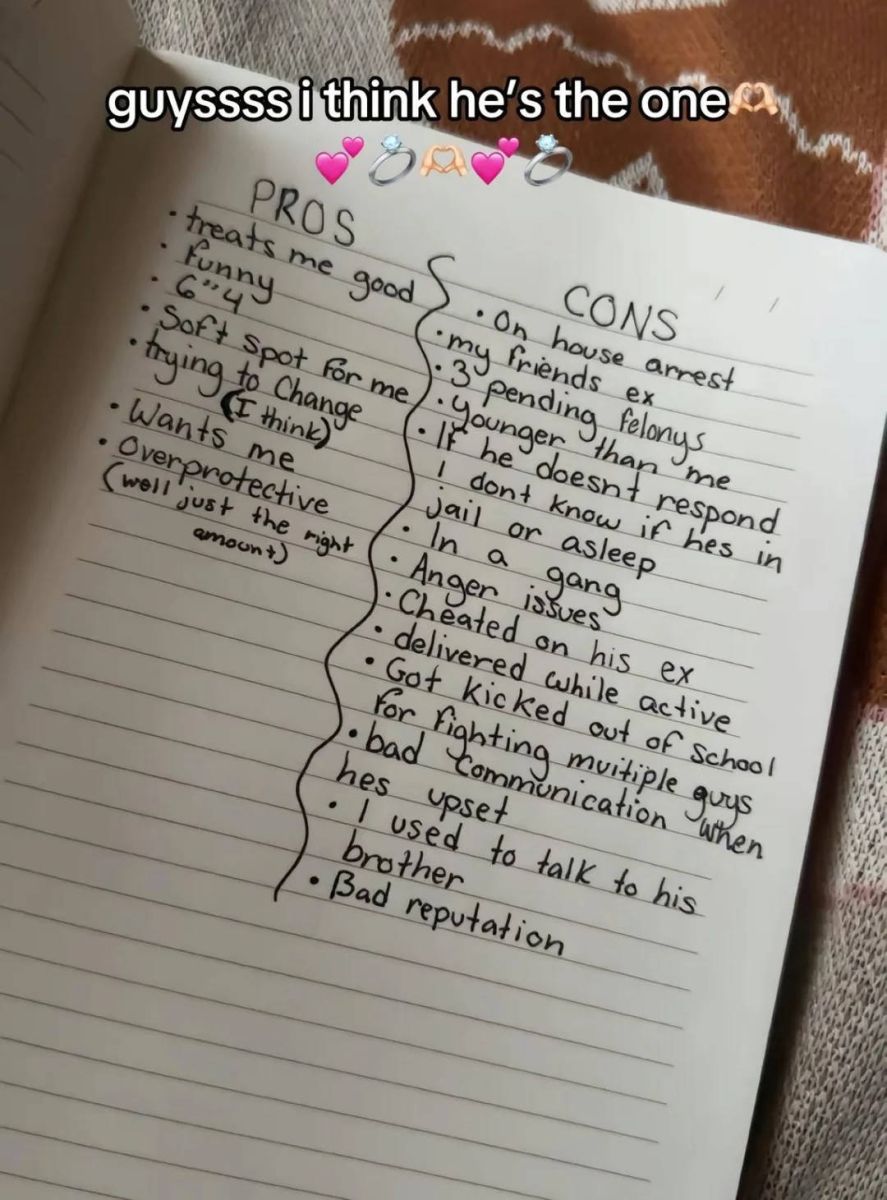 guyssss i think he's the one🫶🏻
💕💍🫶🏻💕💍
PROS
• treats me good
• funny
• 6"4
• Soft spot for me
• trying to Change
(I think)
• Wants me
• Overprotective
(well just the right
amount)
CONS
• On house arrest
• my friends ex
• 3 pending felonys
• younger than me
• If he doesnt respond
I dont know if hes in
jail or asleep
• In a gang
• Anger issues
• Cheated on his ex
• delivered while active
• Got kicked out of school
for fighting multiple guys
• bad communication when
hes upset
• I used to talk to his
brother
• Bad reputation